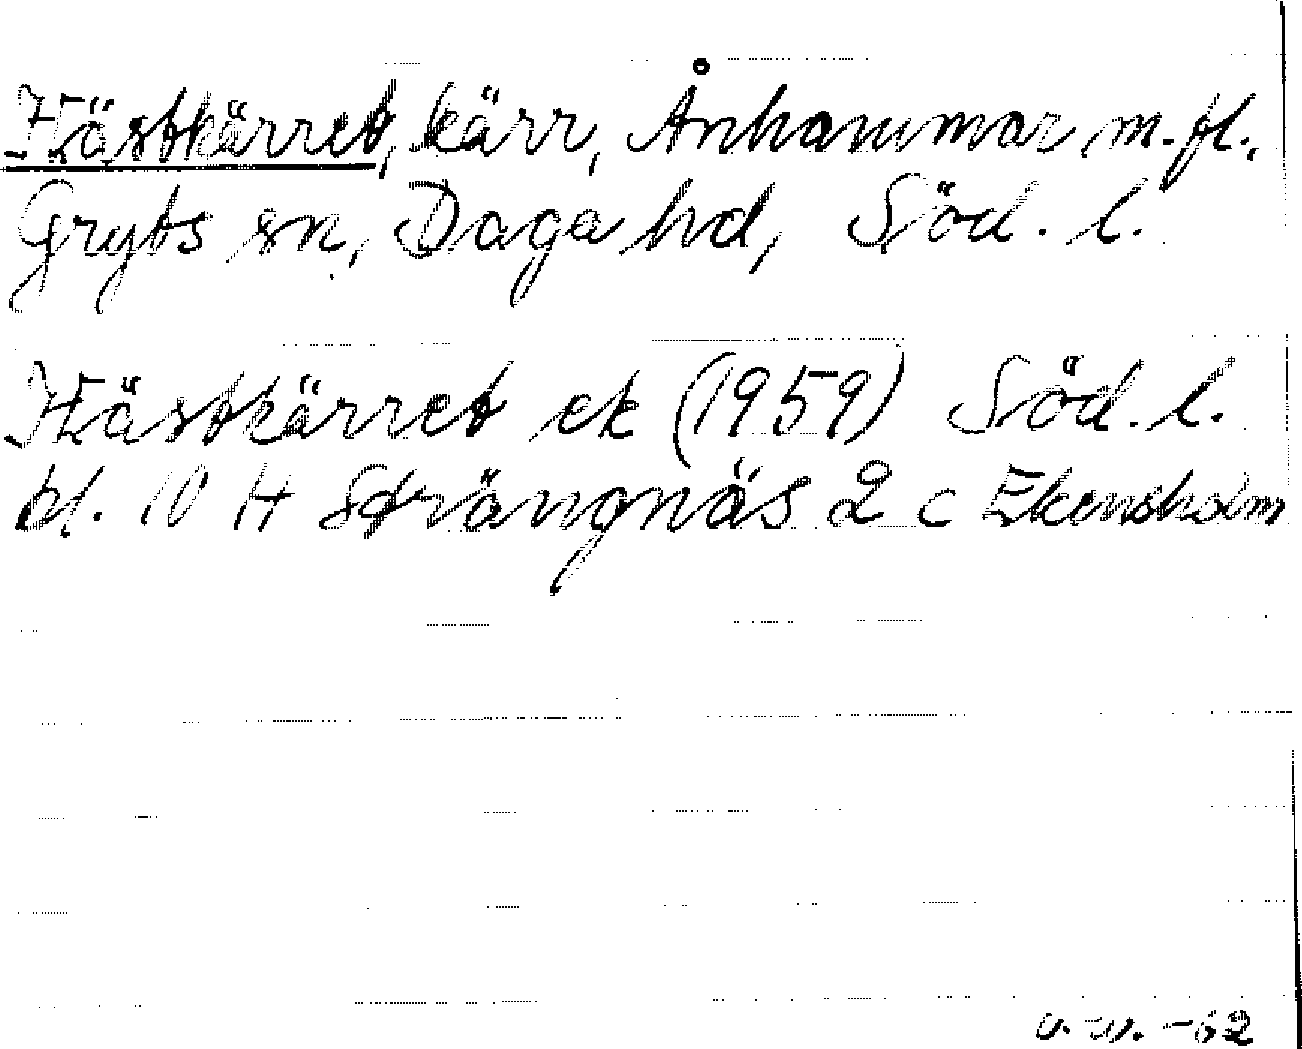 Hästkärret, kärr, Ånhammar m. fl.,
Gryts sn, Daga hd, Söd. l.
Hästkärret ek (1959) Söd. l.
bl. 10 H Strängnäs 2 c Ekensholm
-62